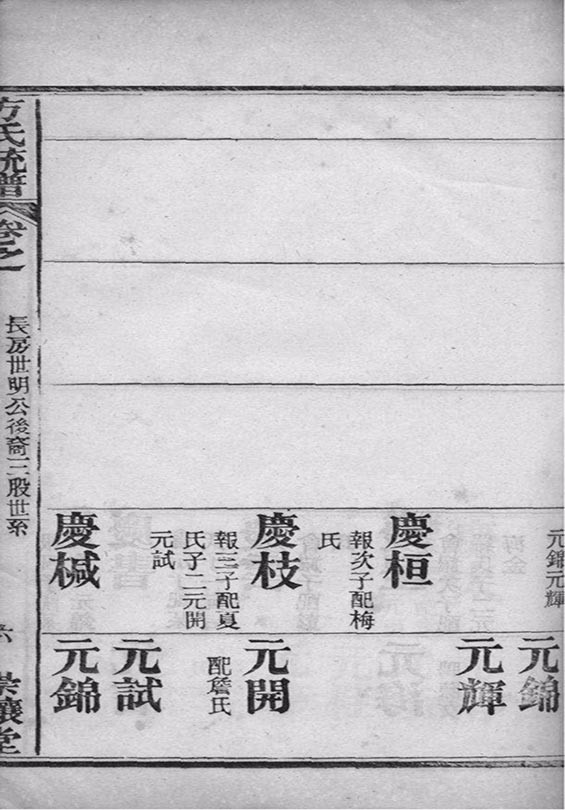 元錦元輝
慶桓
報次子配梅
氏
慶枝
報三子配夏
氏子二元開
元試
慶椷
元錦
元輝
元開
配詹氏
元試
元錦
方氏統譜
卷之一
長房世明公後裔三股世系
六
堂